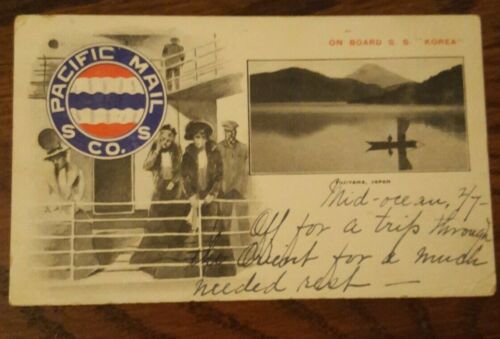 ON BOARD S. S. "KOREA"
PACIFIC MAIL
S S
CO.
FUJIYAMA, JAPAN
Mid-ocean, 2/7-
Off for a trip through
the Orient for a much
needed rest —